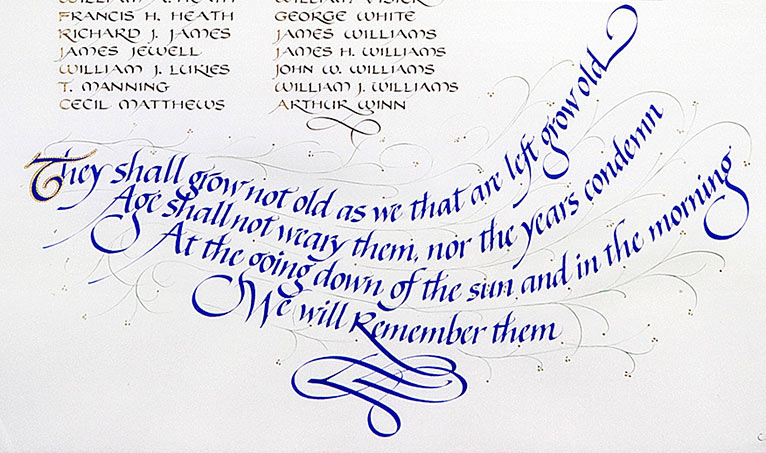 FRANCIS H. HEATH
RICHARD J. JAMES
JAMES JEWELL
WILLIAM J. LUKIES
T. MANNING
CECIL MATTHEWS
GEORGE WHITE
JAMES WILLIAMS
JAMES H. WILLIAMS
JOHN W. WILLIAMS
WILLIAM J. WILLIAMS
ARTHUR WINN
They shall grow not old as we that are left grow old
Age shall not weary them, nor the years condemn
At the going down of the sun and in the morning
We will Remember them